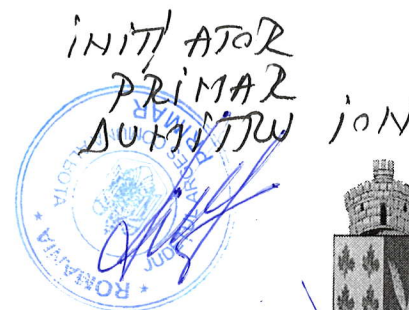 INIȚIATOR
PRIMAR
DUMITRU ION
ROMANIA * JUD. ARGEȘ COMUNA * PRIMAR